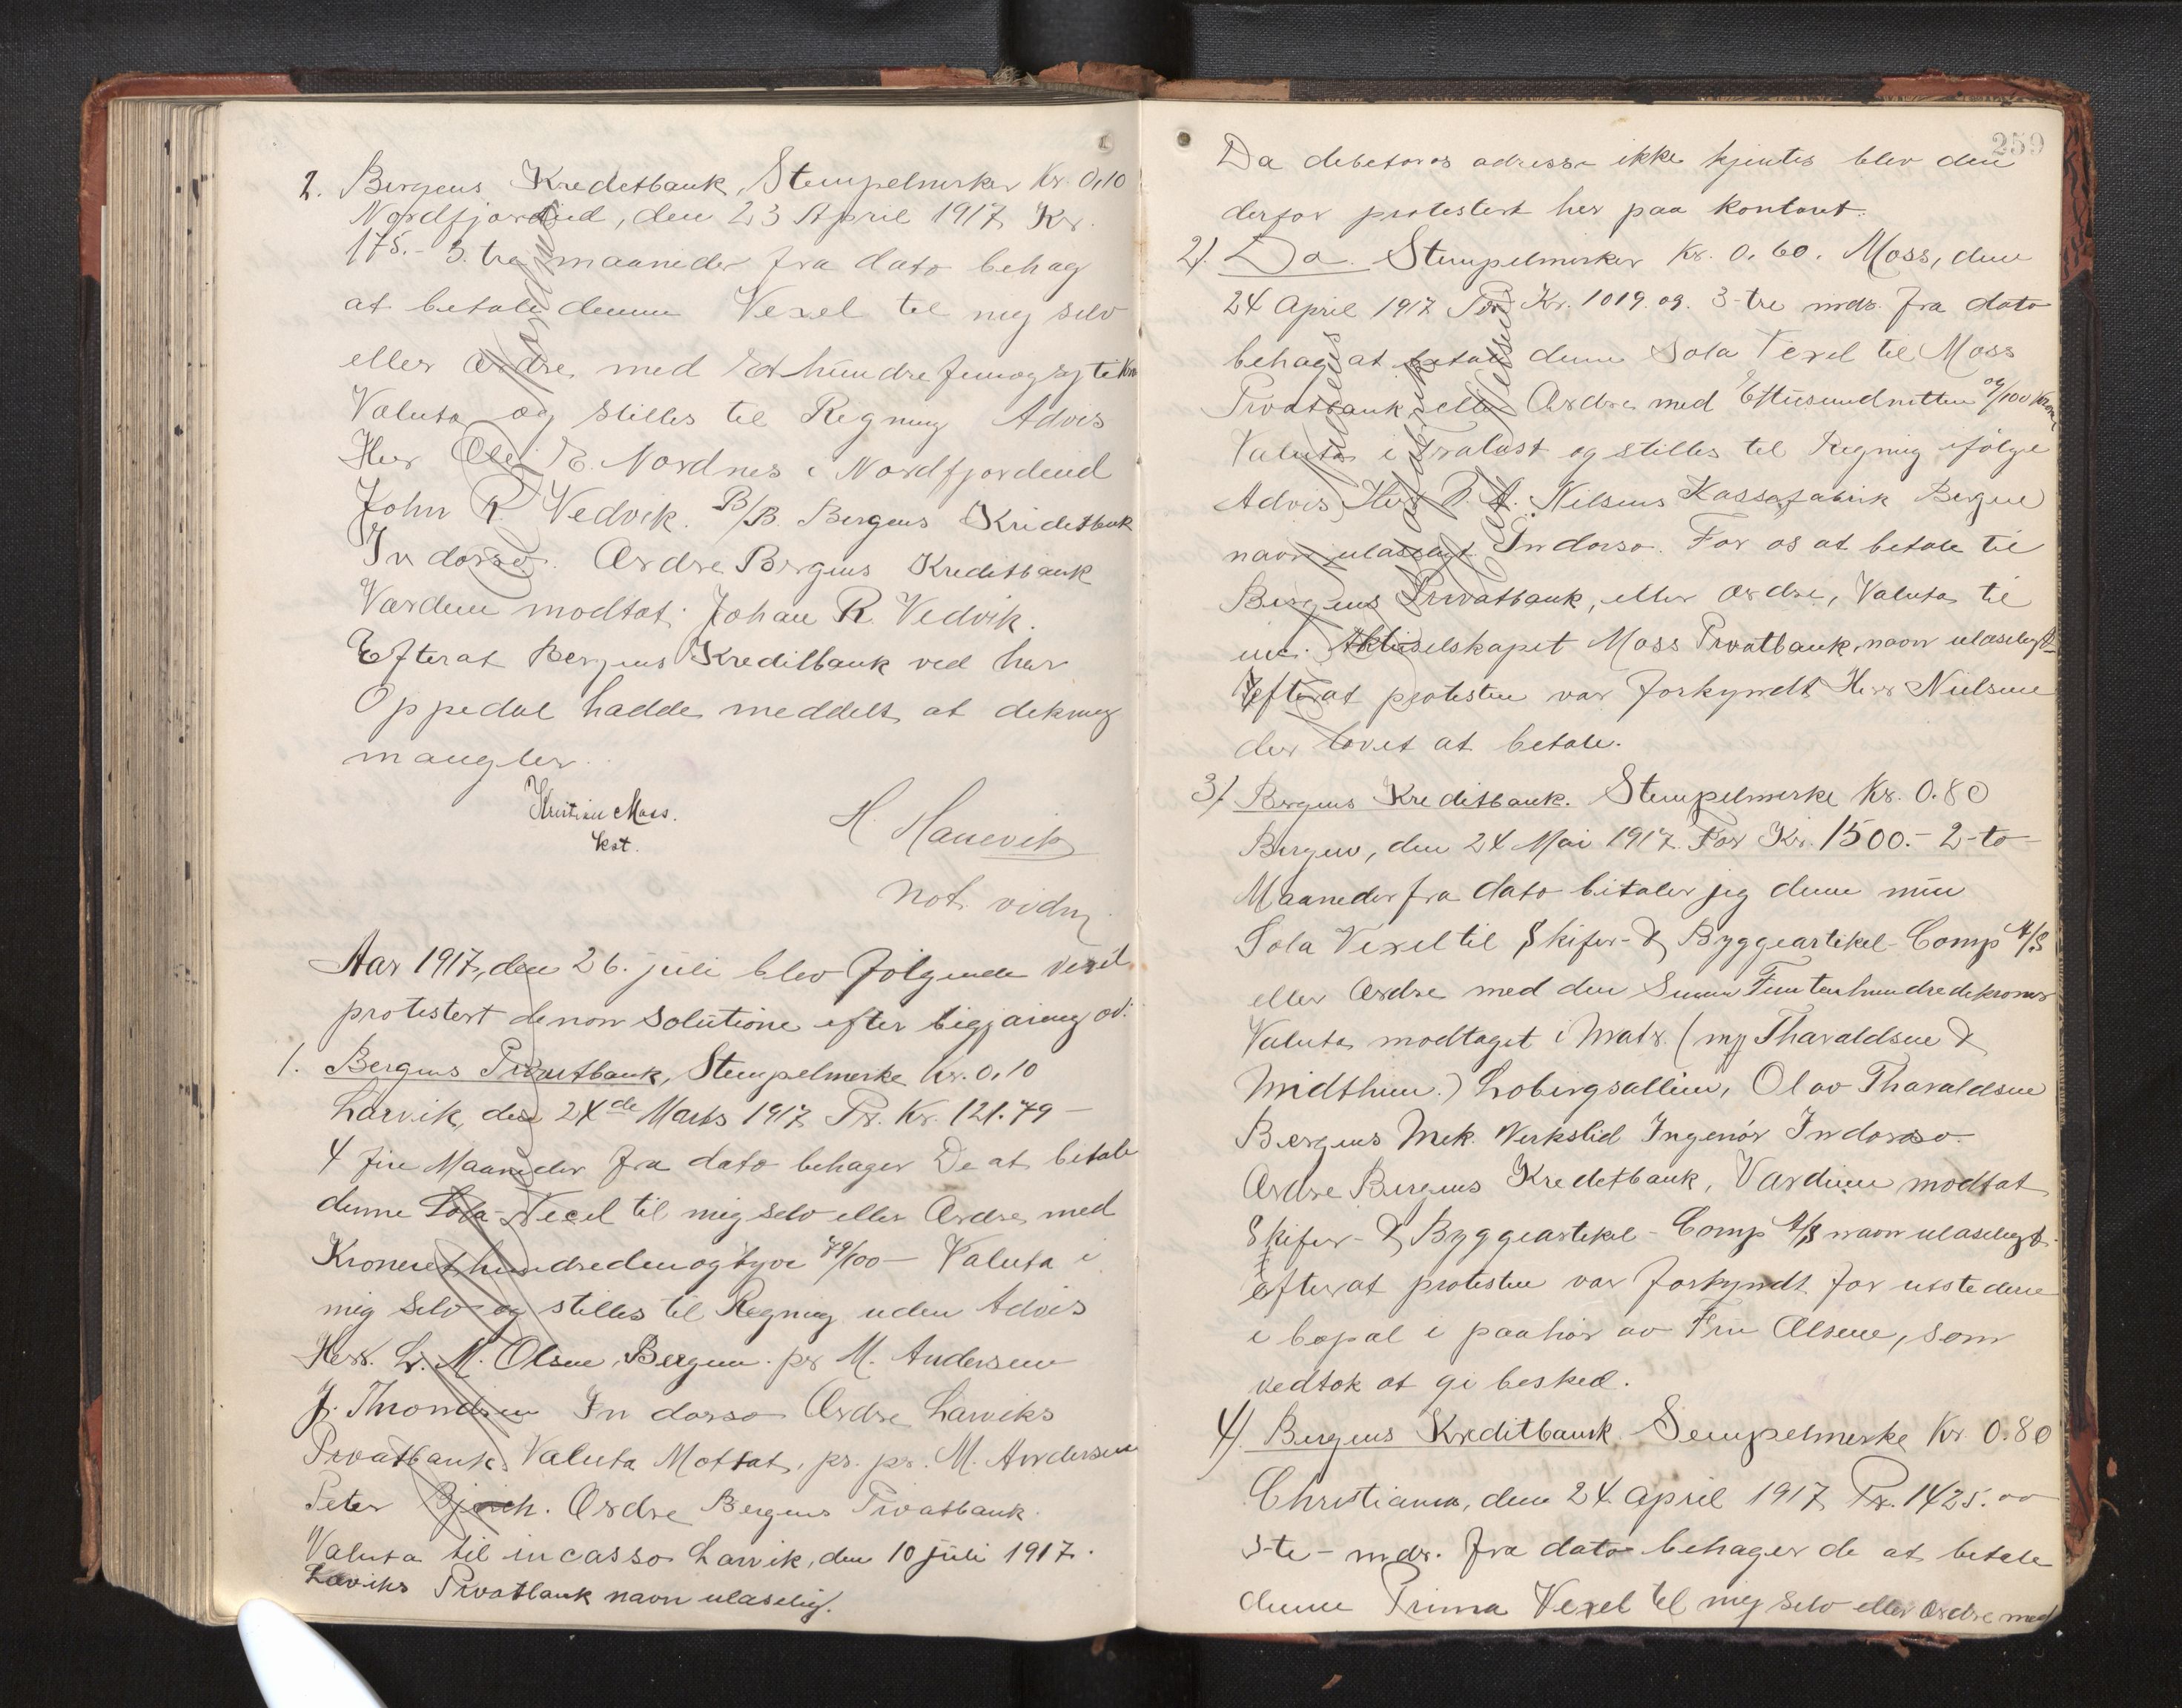 2. Bergens Kreditbank, Stempelmerker Kr. 0,10
Nordfjordeid, den 23 April 1917 Kr.
175.- 3. tre maaneder fra dato behag
at betale denne Vexel til mig selv
eller Ordre med Et hundre femogsytti Kr
Valuta og stilles til Regning Advis
Herr Ole E. Nordnes i Nordfjordeid
John R. Vedvik. B/B. Bergens Kreditbank
In dorso. Ordre Bergens Kreditbank
Værdien modtat. Johan R. Vedvik.
Efterat Bergens Kreditbank ved her
Oppedal hadde meddelt at dekning
mangler.
Kristian Maas.
kst.
H. Hanevik
Not. vidn.
Aar 1917, den 26. juli blev følgende vexel
protestert de non solutione efter begjæring av:
1. Bergens Privatbank, Stempelmerke Kr. 0,10
Larvik, den 24de Marts 1917 Pr. Kr. 121.79 -
4 fire Maaneder fra dato behager De at betale
denne Sola-Vexel til mig selv eller Ordre med
Kroner et hundredeenogtyve 79/100 - Valuta i
mig selv og stilles til Regning uden Advis
Herr. L. M. Olsen, Bergen. pr M. Andersen
J. Throndsen In dorso Ordre Larviks
Privatbank. Valuta Mottat. pr. pr. M. Andersen
Peter. Ordre Bergens Privatbank.
Valuta til incasso Larvik, den 10 juli 1917.
Larviks Privatbank navn ulæselig.
259
Da debitors adresse ikke kjentes blev den
derfor protestert her paa kontoret.
2). Do. Stempelmerker Kr. 0.60. Moss, den
24 April 1917 For Kr. 1019.09. 3-tre mdr. fra dato
behag at betale denne Sola Vexel til Moss
Privatbank eller Ordre med Ettusendnitten 09/100 Kroner
Valuta i Trælast og stilles til Regning ifølge
Advis Herr T. A. Nilsens Kassefabrik Bergen
navn ulæseligt. In dorso. For os at betale til
Bergens Privatbank, eller ordre, Valuta til
inc. Aktieselskapet Moss Privatbank, navn ulæseligt
Efterat protesten var forkyndt Herr Nielsen
der lovet at betale.
3). Bergens Kreditbank. Stempelmerke Kr. 0.80
Bergen, den 24 Mai 1917. For Kr. 1500.- 2-to-
Maaneder fra dato betaler jeg denne min
Sola Vexel til Skifer- & Byggeartikel-Comp A/S
eller Ordre med den Summa Femtenhundredekroner
Valuta modtaget i Matr. (mp Tharaldsen &
Midthun.) Lobergsallien, Olav Tharaldsen
Bergens Mek. Verksted Ingeniør In dorso.
Ordre Bergens Kreditbank, Værdien modtat
Skifer- & Byggeartikel-Comp A/S navn ulæseligt.
Efterat protesten var forkyndt for utstederen
i bopæl i paahør av Fru Olsen, som
vedtok at gi besked.
4). Bergens Kreditbank. Sempelmerke Kr. 0.80
Christiania, den 24 April 1917 Pr. 1425.00
3-te- mdr. fra dato behager de at betale
denne Prima Vexel til mig selv eller Ordre med